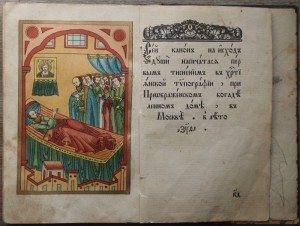 Сїй канѡн на исход
души напечатася пер
вым тиснением в хрїстї
анской типографїи при
Преображенском богадѣ
ленном домѣ в
Москвѣ в лѣто